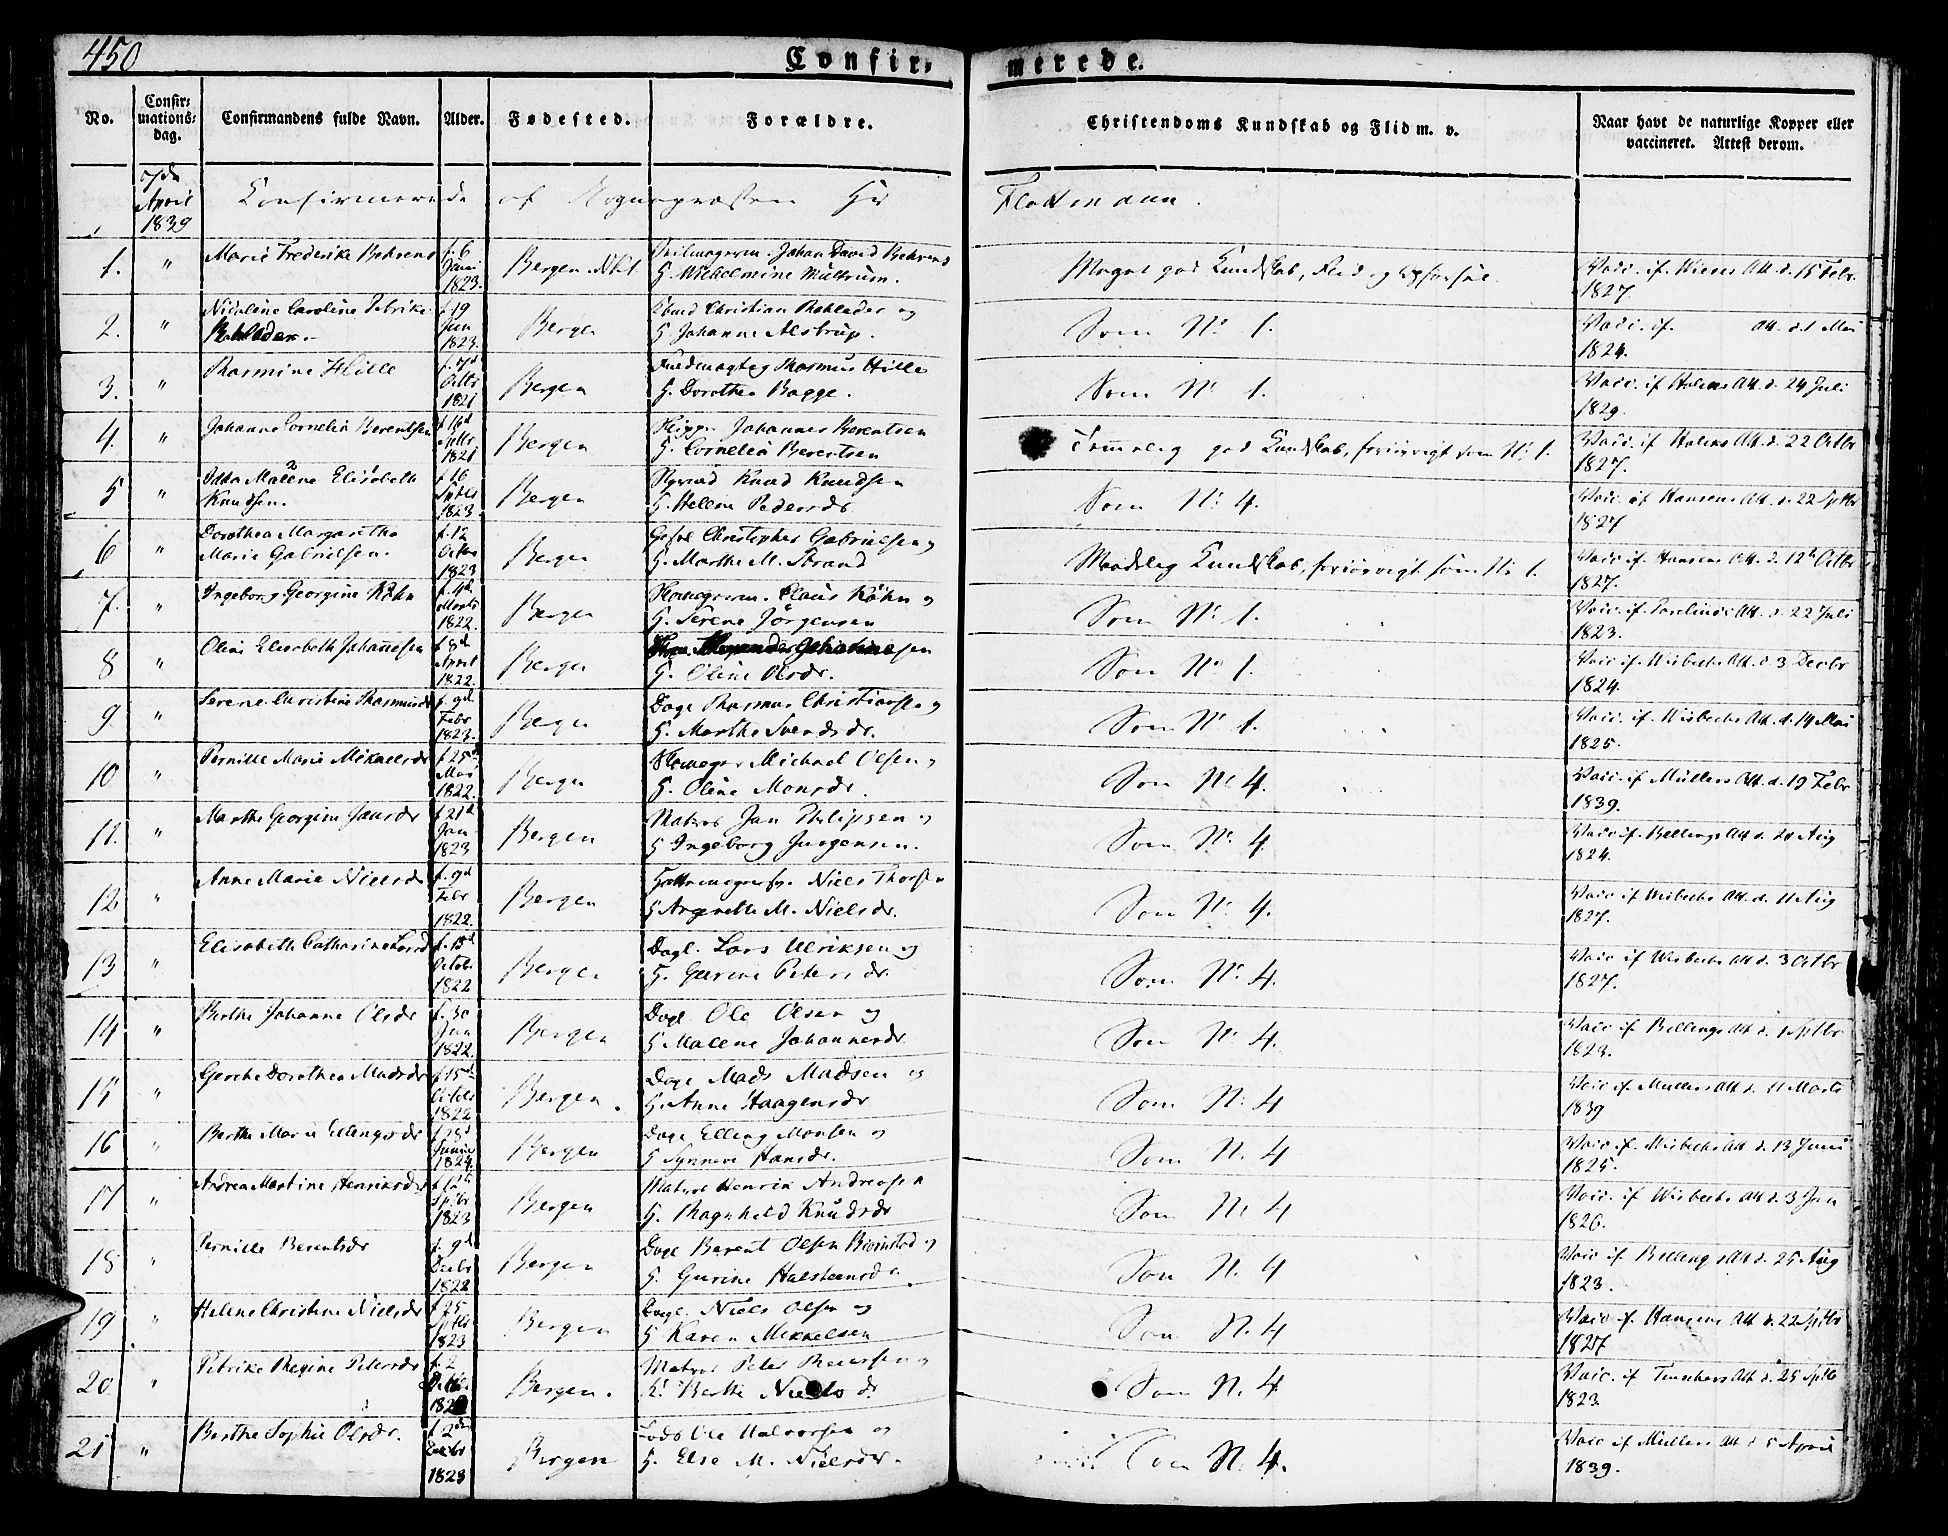 450
Confir-
merede.
No.
Confir-
mations-
dag.
Confirmandens fulde Navn.
Alder.
Fødested.
Forældre.
Christendoms Kundskab og Flid m. v.
Naar havt de naturlige Kopper eller
vaccineret. Attest derom.
April
1839
Confirmerede af Sognepræsten Hr
Flodmann.
1. " Marie Frederike Behrens f. 6
Juni
1823. Bergen Johan David Behrens
G. Wilhelmine Müllrum. Meget god Kundskab, Flid og Opførsel. Vacc. if. Wieses Att. d. 15 Febr.
1827.
2. " Nicoline Caroline Petrike f. 19
Jun
1823. Bergen Christian og
G. Johanne Alstrup. Som No 1. Vacc. if. Att. d. 1 Mai
1824.
3. " Rasmine Hille
1821 Bergen Fuldmægtig Rasmus Hille
G. Dorothea Bagge. Som No 1. Vacc. if Holms Att. d. 24 Juli
1829.
4. " Johanne Cornelia Berentsen
1821 Bergen Skipper Johannes Berentsen
G. Cornelia Berentsen god Kundskab, forøvrigt som No 1. Vacc. if Holms Att. d. 22 Octbr
1827.
5 " Malene Elisabeth
Knudsen. f. 16
1823. Bergen Knud Knudsen
G. Helene Pedersdr. Som No 4. Vacc. if Hansens Att. d. 22 Sptbr
1827
6 " Dorothea Margaretha
Marie Gabrielsen. f. 12
Octbr
1823 Bergen Christopher Gabrielsen og
G. Marthe M. Strand Maadelig Kundskab, forøvrigt som No 1. Vacc. if. Hansens Att. d. 12 Octbr
1827.
7. " Ingeborg Georgine Köhn
Marts
1822. Bergen Claus Köhn og
G. Serene Jörgensen Som No 1. Vacc. if. Att. d. 22 Juli
1823.
8 " Oline Elisabeth Johannesen f. 8d
April
1822. Bergen
G. Oline Olsdr. Som No 1. Vacc. if Wisbechs Att. d. 3 Decbr
1824.
9 " Serene Christine Rasmusdr f. 9d
Febr
1823. Bergen Rasmus Christiansen og
G. Marthe Svendsdr. Som No 1. Vacc. if. Wisbechs Att. d. 14 Mai
1825.
10 " Pernille Marie Mikkelsdr f. 25
Mai
1822. Bergen Michael Olsen og
G. Oline Monsdr. Som No 4. Vacc. if Müllers Att. d. 19 Febr
1839.
11. " Marthe Georgine Jansdr f. 21d
Jan
1823 Bergen Matros Jan Philipsen og
G Ingeborg Jurgensen. Som No 4. Vacc. if. Bellings Att. d. 20 Aug
1824.
12 " Anne Marie Nielsdr f. 9d
Febr
1822. Bergen Niels Thorsen
G Angnethe M. Nielsdr. Som No 4. Vacc. if Wisbechs Att. d. 11 Aug
1827.
13 " Elisabeth Catharine Larsdr
Octob.
1822 Bergen Dagl. Lars Ulriksen og
G. Gurine Petersdr. Som No 4. Vacc if Wisbechs Att d. 3 Octbr
1827.
14 " Berthe Johanne Olsdr f. 30
Jan
1822. Bergen Dagl Ole Olsen og
G. Malene Johannesdr. Som No 4. Vacc if Bellings Att d. 1 Sptbr
1823.
15 " Gerche Dorothea Madsdr f. 15d
1822 Bergen. Dagl Mads Madsen og
G. Anne Haagensdr Som No 4 Vacc if. Müllers Att d. 11 Marts
1839
16 " Berthe Marie Ellingsdr
Junii
1824. Bergen Dagl Elling Monsen og
G Synneve Hansdr. Som N. 4 Vacc if. Wisbechs Att d. 13 Junii
1825.
17 " Andrea Martine Henriksdr f. 12
1823 Bergen Matros Henrik Andreasen
G. Ragnhild Knudsdr Som N. 4 Vacc. if Wisbechs Att d. 3 Jan
1826.
18 " Pernille Berentsdr f. 9d
Decbr
1822 Bergen Dagl Berent Olsen og
G. Gurine Halsteensdr. Som N. 4 Vacc if. Bellings Att d. 25 Aug
1823.
19 " Helene Christine Nielsdr f. 25
Sptbr
1823 Bergen Dagl. Niels Olsen og
G Karen Mikkelsen Som N. 4 Vacc. if Hansens Att d. 22 Sptbr
1827
20 " Petrike Regine Petersdr f. 2
Bergen. Matros Peter og
G. Berthe Nielsdr Som N. 4 Vacc. if Att d. 25 Sptb
1823.
21 " Berthe Sophie Olsdr. f. 2
1823 Bergen Lods Ole Halvorsen og
G. Else M. Nielsdr. Som N. 4. Vacc if Müllers Att d 5 April
1839.